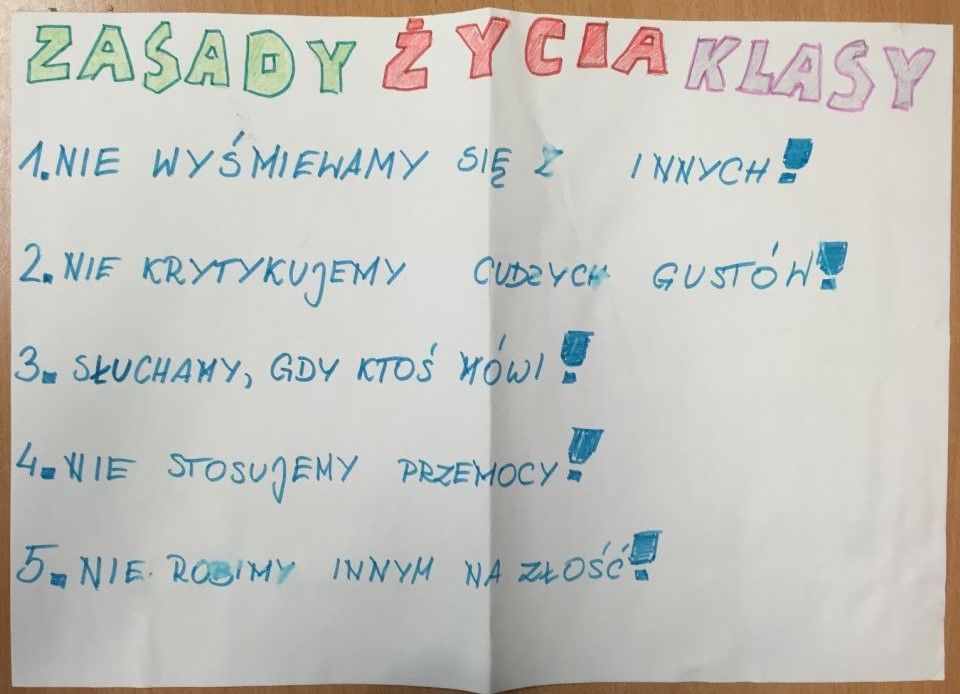 ZASADY ŻYCIA KLASY
1. NIE WYŚMIEWAMY SIĘ Z INNYCH!
2. NIE KRYTYKUJEMY CUDZYCH GUSTÓW!
3. SŁUCHAMY, GDY KTOŚ MÓWI!
4. NIE STOSUJEMY PRZEMOCY!
5. NIE ROBIMY INNYM NA ZŁOŚĆ!